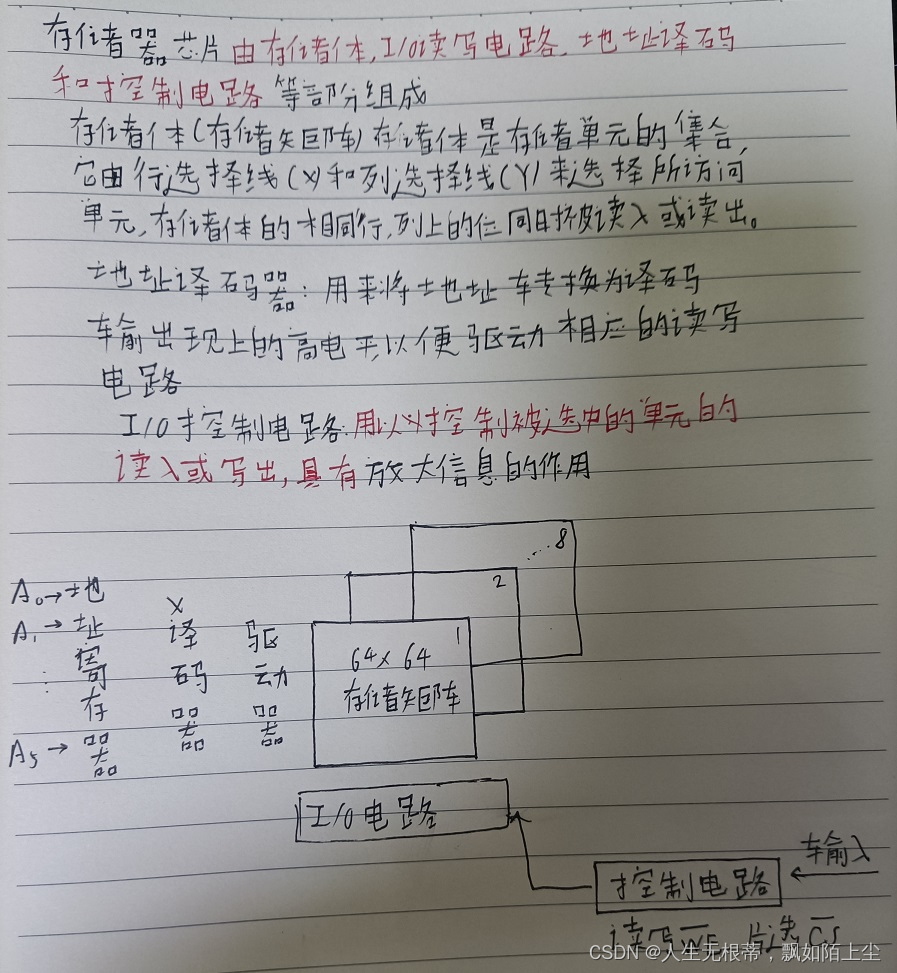 存储器芯片由存储体,I/O读写电路,地址译码
和控制电路等部分组成
存储体(存储矩阵)存储体是存储单元的集合,
它由行选择线(X)和列选择线(Y)来选择所访问
单元,存储体的相同行,列上的位同时被读入或读出。
地址译码器:用来将地址转换为译码
输出现上的高电平,以便驱动相应的读写
电路
I/O控制电路:用以对控制被选中的单元的
读入或写出,具有放大信息的作用
A₀→
A₁→
⋮
A₅→
地址寄存器
X译码器
驱动器
…8
2
1
64×64
存储矩阵
I/O电路
控制电路
输入
读写W̅E̅ 片选C̅S̅
CSDN @人生无根蒂,飘如陌上尘